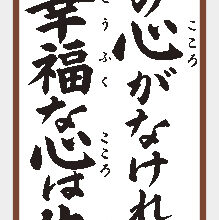 の心がなけれ
こころ
幸福な心は
こうふく
こころ